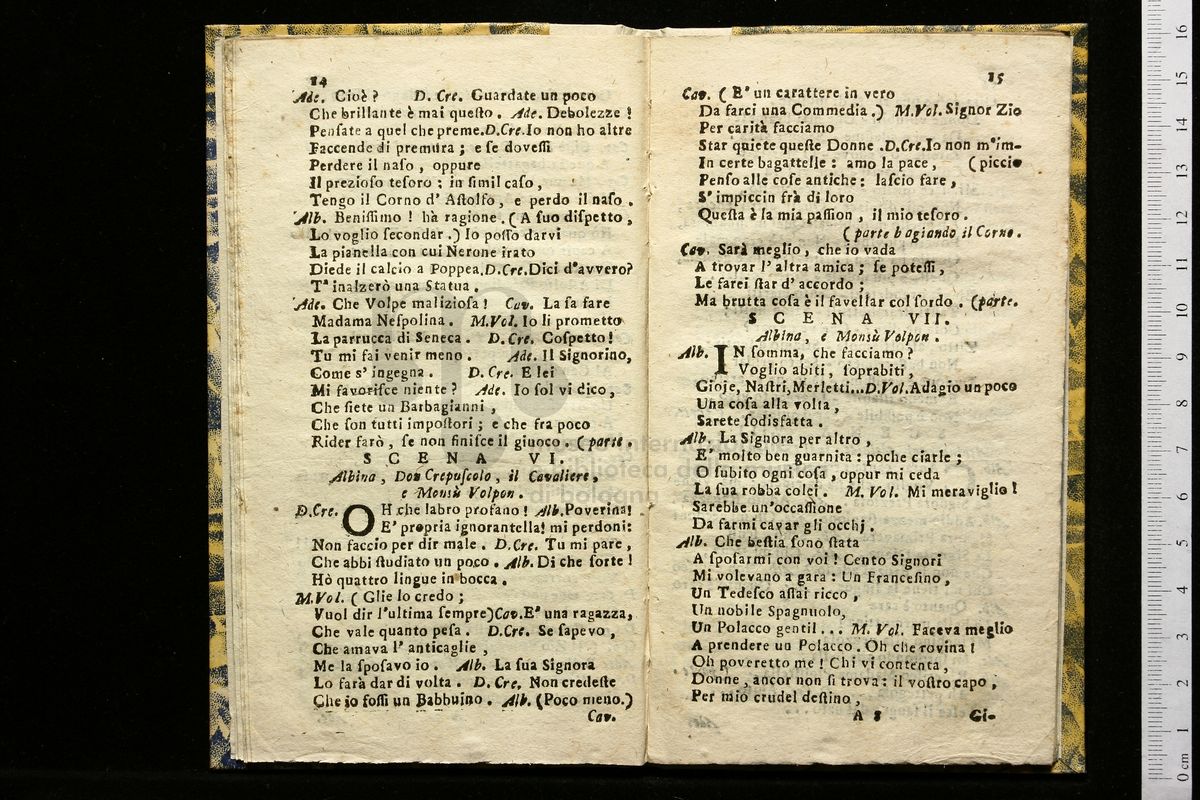 14
Ade. Cioè ? D. Cre. Guardate un poco
Che brillante è mai queſto . Ade. Debolezze !
Penſate a quel che preme. D.Cre. Io non ho altre
Faccende di premura ; e ſe doveſſi
Perdere il naſo , oppure
Il prezioſo teſoro : in ſimil caſo ,
Tengo il Corno d' Aſtolfo , e perdo il naſo .
Alb. Beniſſimo ! hà ragione . ( A ſuo diſpetto ,
Lo voglio ſecondar .) Io poſſo darvi
La pianella con cui Nerone irato
Diede il calcio a Poppea. D.Cre. Dici d'avvero?
T' inalzerò una Statua .
Ade. Che Volpe malizioſa ! Cav. La ſa fare
Madama Neſpolina . M.Vol. Io li prometto
La parrucca di Seneca . D. Cre. Coſpetto !
Tu mi fai venir meno . Ade. Il Signorino,
Come s' ingegna . D. Cre. E lei
Mi favoriſce niente ? Ade. Io ſol vi dico ,
Che ſiete un Barbagianni ,
Che ſon tutti impoſtori ; e che fra poco
Rider farò , ſe non finiſce il giuoco . ( parte .
SCENA VI.
Albina , Don Crepuſcolo , il Cavaliere ,
e Monsù Volpon .
D.Cre. OH che labro profano ! Alb. Poverina!
E' propria ignorantella! mi perdoni:
Non faccio per dir male . D. Cre. Tu mi pare ,
Che abbi ſtudiato un poco . Alb. Di che ſorte !
Hò quattro lingue in bocca .
M.Vol. ( Glie lo credo ;
Vuol dir l'ultima ſempre) Cav. E' una ragazza,
Che vale quanto peſa . D.Cre. Se ſapevo ,
Che amava l' anticaglie ,
Me la ſpoſavo io . Alb. La ſua Signora
Lo farà dar di volta . D. Cre, Non credeſte
Che io foſſi un Babbuino . Alb. (Poco meno.)
Cav.
15
Cav. ( E' un carattere in vero
Da farci una Commedia .) M.Vol. Signor Zio
Per carità facciamo
Star quiete queſte Donne . D.Cre. Io non m'im-
In certe bagattelle : amo la pace , (piccio
Penſo alle coſe antiche : laſcio fare ,
S' impiccin frà di loro
Queſta è la mia paſſion , il mio teſoro .
( parte bagiando il Corno .
Cav. Sarà meglio , che io vada
A trovar l' altra amica ; ſe poteſſi ,
Le farei ſtar d' accordo ;
Ma brutta coſa è il favellar col ſordo . (parte.
SCENA VII.
Albina , e Monsù Volpon .
Alb. IN ſomma, che facciamo ?
Voglio abiti , ſoprabiti ,
Gioje, Naſtri, Merletti... D.Vol. Adagio un poco
Una coſa alla volta ,
Sarete ſodisfatta .
Alb. La Signora per altro ,
E' molto ben guarnita : poche ciarle ;
O ſubito ogni coſa , oppur mi ceda
La ſua robba colei . M. Vol. Mi meraviglio !
Sarebbe un'occaſſione
Da farmi cavar gli occhj .
Alb. Che beſtia ſono ſtata
A ſpoſarmi con voi ! Cento Signori
Mi volevano a gara : Un Franceſino ,
Un Tedeſco aſſai ricco ,
Un nobile Spagnuolo,
Un Polacco gentil ... M. Vol. Faceva meglio
A prendere un Polacco . Oh che rovina !
Oh poveretto me ! Chi vi contenta ,
Donne , ancor non ſi trova : il voſtro capo ,
Per mio crudel deſtino ,
A 8 Gi-